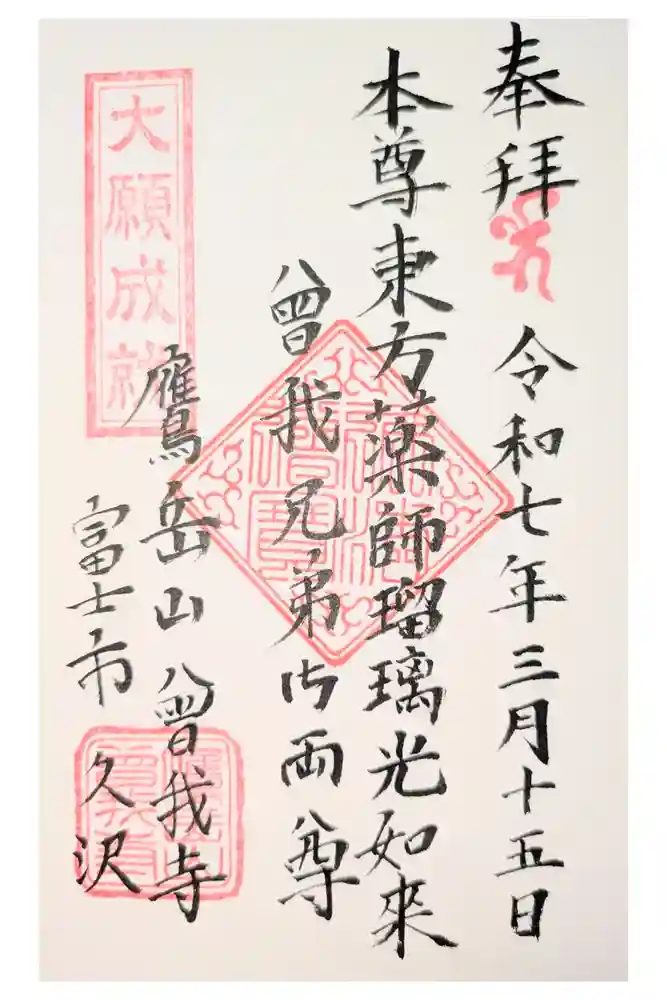 奉拝
令和七年三月十五日
本尊東方薬師瑠璃光如来
曾我兄弟御両尊
大願成就
鷹岳山 曾我寺
富士市 久沢